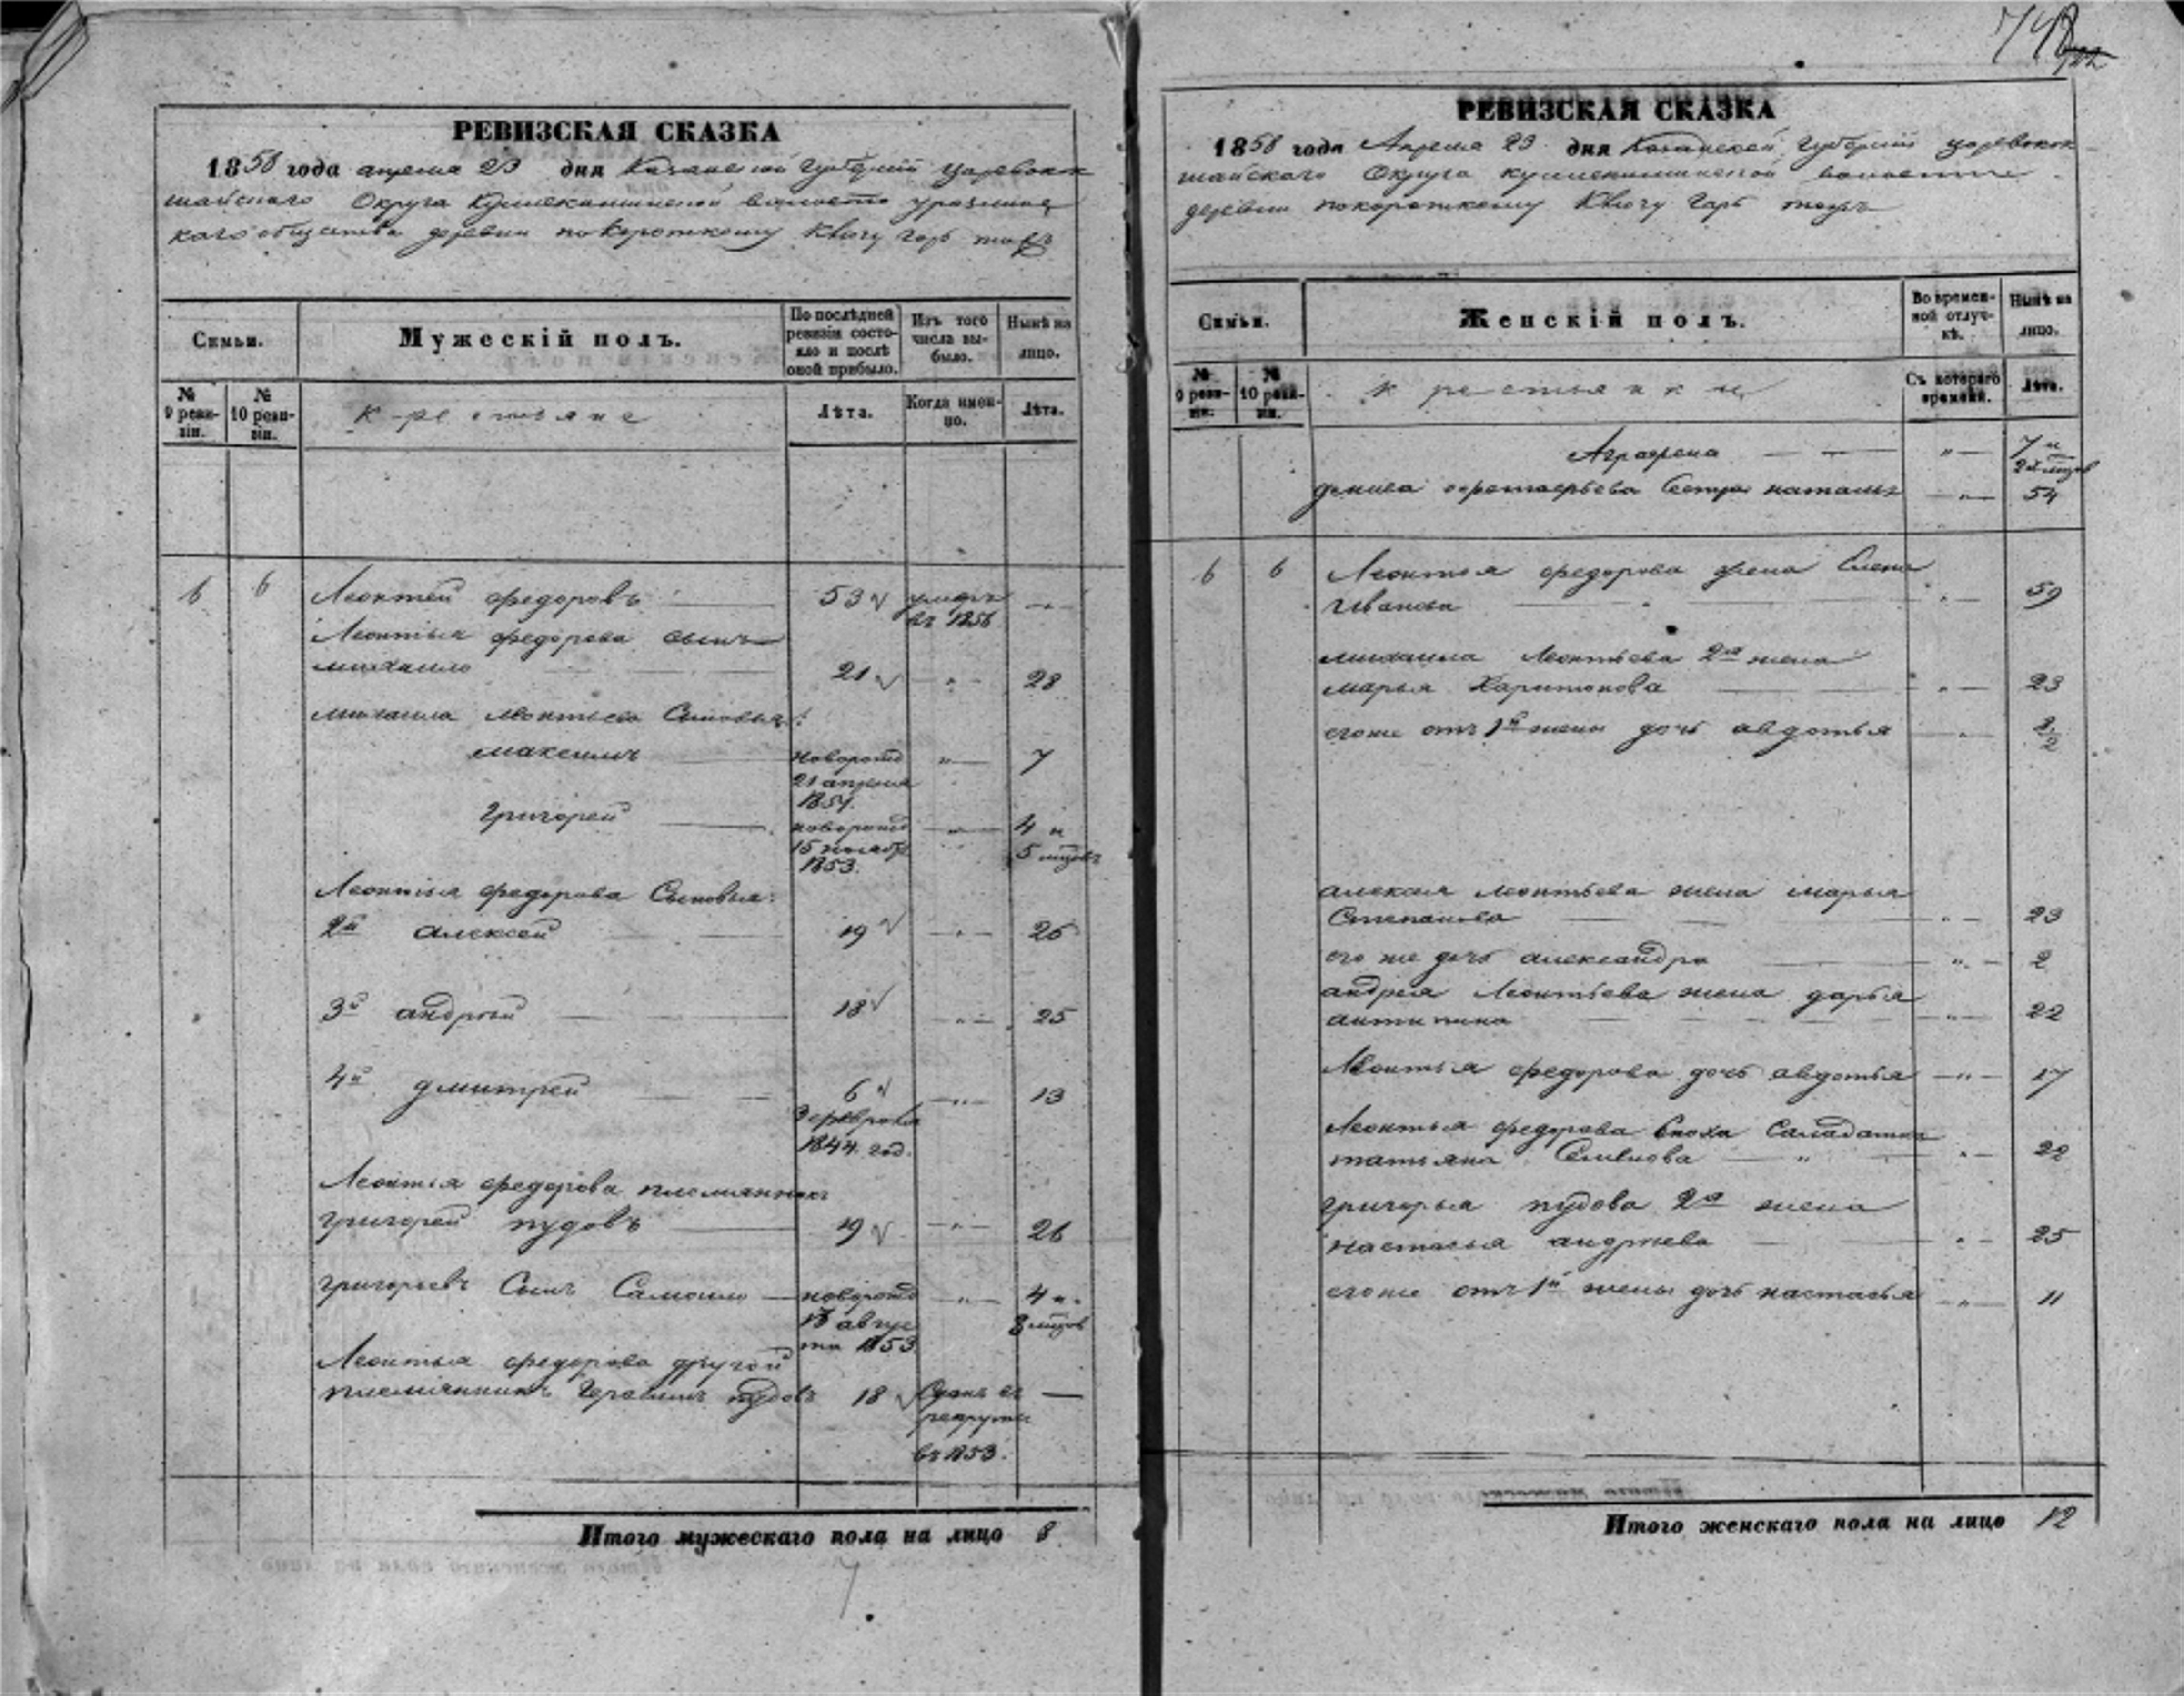 РЕВИЗСКАЯ СКАЗКА
1858 года апреля 23 дня Казанской Губернии Царевокок
шайскаго Округа волости
каго общества деревни по Короткому Ключу
Семьи.
Мужескій полъ.
По послѣдней ревизіи состояло и послѣ оной прибыло.
Изъ того числа выбыло.
Нынѣ на лицо.
№ 9 ревизіи.
№ 10 ревизіи.
крестьяне
Лѣта.
Когда именно.
Лѣта.
6 6 Леонтей Федоровъ 53 умеръ
въ 1856
Леонтья Федорова сынъ
михаило 21 " 28
михаила леонтьева Сыновья:
максимъ новорожд " 7
21 апреля
1851.
григорей новорожд " 4 и
15 ноябр 5 мцовъ
1853.
Леонтья Федорова Сыновья:
2й алексей 19 " 26
3й андрей 18 " 25
4й дмитрей 6 " 13
3 февраля
1844 год.
Леонтья Федорова племянникъ
григорей пудовъ 19 " 26
григорьевъ Сынъ Самоило новорожд " 4 и
авгус 8 мцов
та 1853
Леонтья федорова другой
племянникъ Герасимъ пудовъ 18 въ —
рекруты
въ 1853.
Итого мужескаго пола на лицо 8
7
РЕВИЗСКАЯ СКАЗКА
1858 года Апреля 23 дня Казанской Губернии Царевокок
шайскаго Округа волости
деревни по Короткому Ключу
Семьи.
Женскій полъ.
Во временной отлучкѣ.
Нынѣ на лицо.
№ 9 ревизіи.
№ 10 ревизіи.
крестьянки
Съ котораго времени.
Лѣта.
Аграфена " 7 и
2 мцов
Сестра наталья " 54
6 6 Леонтья федорова жена Елена
Иванова " 59
михаила Леонтьева 2я жена
марья Харитонова " 23
егоже отъ 1й жены дочь авдотья "
алексея леонтьева жена марья
Степанова " 23
его же дочь александра " 2
андрея Леонтьева жена дарья
антипина " 22
Леонтья федорова дочь авдотья " 17
Леонтья федорова сноха Салдатка
татьяна " 22
григорья пудова 2я жена
настасья андреева " 25
егоже отъ 1й жены дочь настасья " 11
Итого женскаго пола на лицо 12